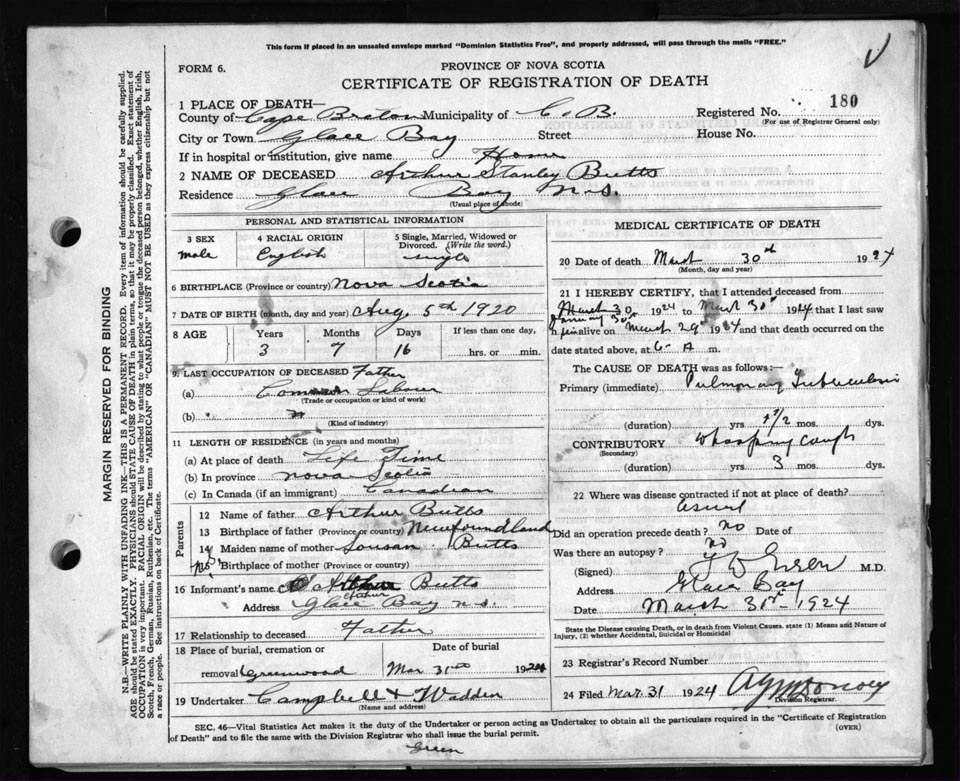 This form if placed in an unsealed envelope marked "Dominion Statistics Free", and properly addressed, will pass through the mails "FREE."
FORM 6.
PROVINCE OF NOVA SCOTIA
CERTIFICATE OF REGISTRATION OF DEATH
MARGIN RESERVED FOR BINDING
N.B—WRITE PLAINLY WITH UNFADING INK—THIS IS A PERMANENT RECORD. Every item of information should be carefully supplied.
AGE should be stated EXACTLY. PHYSICIANS should STATE CAUSE OF DEATH in plain terms, so that it may be properly classified. Exact statement of
OCCUPATION is very important. RACIAL ORIGIN will be described by stating to what people or tongue the deceased person belonged, whether English, Irish,
Scotch, French, German, Russian, Ruthenian, etc. The terms "AMERICAN" OR "CANADIAN" MUST NOT BE USED as they express citizenship but not
a race or people. See instructions on back of Certificate.
1 PLACE OF DEATH—
County of Cape Breton Municipality of C. B. Registered No. 180
(For use of Registrar General only)
City or Town Glace Bay Street House No.
If in hospital or institution, give name Home
2 NAME OF DECEASED Arthur Stanley Butts
Residence Glace Bay N.S.
(Usual place of abode)
PERSONAL AND STATISTICAL INFORMATION
3 SEX male
4 RACIAL ORIGIN English
5 Single, Married, Widowed or Divorced. (Write the word.) single
6 BIRTHPLACE (Province or country) Nova Scotia
7 DATE OF BIRTH (month, day and year) Aug. 5th 1920
8 AGE Years Months Days If less than one day,
3 7 16 hrs. or min.
9. LAST OCCUPATION OF DECEASED Father
(a) Common Labour
(Trade or occupation or kind of work)
(b)
(Kind of industry)
11 LENGTH OF RESIDENCE (in years and months)
(a) At place of death Life Time
(b) In province Nova Scotia
(c) In Canada (if an immigrant) Canadian
Parents
12 Name of father Arthur Butts
13 Birthplace of father (Province or country) Newfoundland
14 Maiden name of mother Sousan Butts
15 Birthplace of mother (Province or country)
16 Informant's name Arthur Butts
Father
Address Glace Bay N.S.
17 Relationship to deceased Father
18 Place of burial, cremation or Date of burial
removal Greenwood Mar 31st 1924
19 Undertaker Campbell & Wadden
(Name and address)
MEDICAL CERTIFICATE OF DEATH
20 Date of death March 30th 1924
(Month, day and year)
21 I HEREBY CERTIFY, that I attended deceased from
March 30 1924 to March 30th 1924 that I last saw
January 30th
him alive on March 29th 1924 and that death occurred on
date stated above, at 6- A m.
The CAUSE OF DEATH was as follows:—
Primary (immediate) Pulmonary Tuberculosis
(duration) yrs 1 1/2 mos. dys.
CONTRIBUTORY Whooping Cough
(Secondary)
(duration) yrs 3 mos. dys.
22 Where was disease contracted if not at place of death?
Did an operation precede death? no Date of
Was there an autopsy? no
(Signed) M.D.
Address Glace Bay
Date March 31st 1924
State the Disease causing Death, or in death from Violent Causes. state (1) Means and Nature of
Injury, (2) whether Accidental, Suicidal or Homicidal
23 Registrar's Record Number
24 Filed Mar. 31 1924
Division Registrar.
SEC. 46—Vital Statistics Act makes it the duty of the Undertaker or person acting as Undertaker to obtain all the particulars required in the "Certificate of Registration
of Death" and to file the same with the Division Registrar who shall issue the burial permit. (OVER)
Green